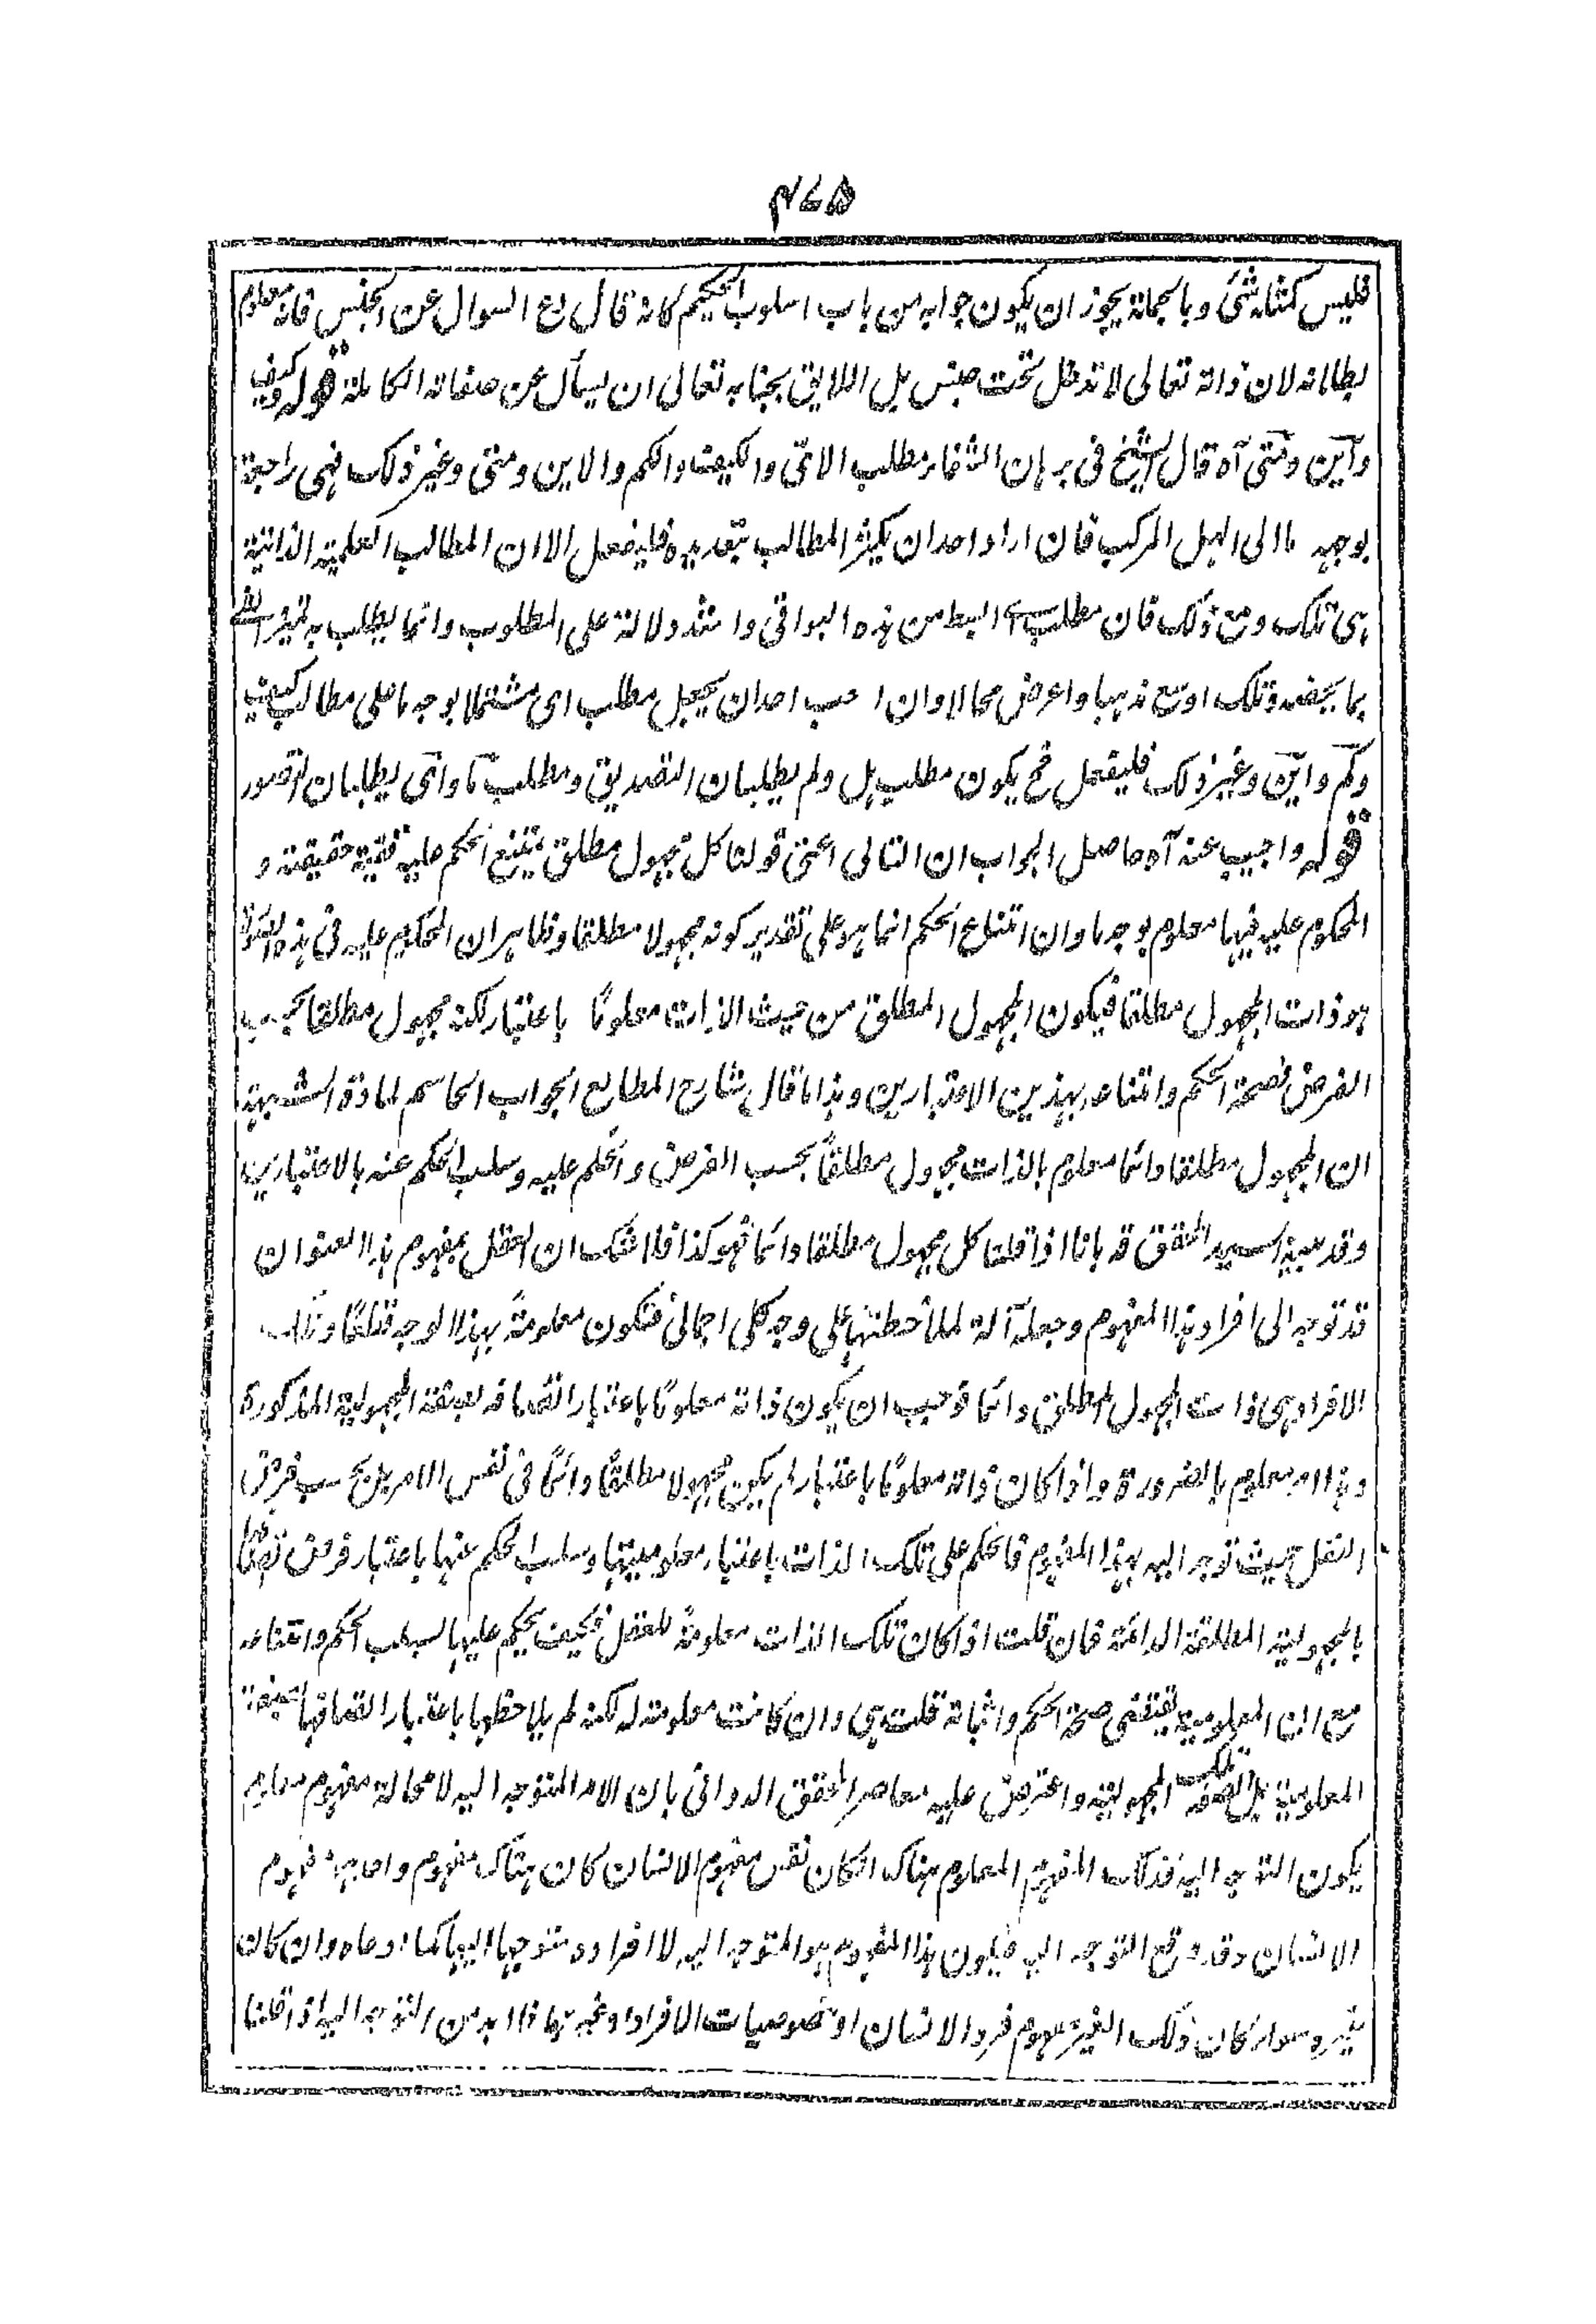 ۴۷۵
فليس كمثله شئ وبالجملة يجوز ان يكون جوابه من باب اسلوب الحكيم كانه قال دع السوال عن الجنس فانه معلوم
بطلانه لان ذاته تعالى لا تدخل تحت جنس بل اللايق بجنابه تعالى ان يسأل عن صفاته الكاملة قوله وكيف
واين ومتى آه قال الشيخ فى برهان الشفاء مطلب الاى والكيف والكم والاين ومتى وغير ذلك فهى راجعة
بوجه ما الى الهل المركب فان اراد احد ان يكثر المطالب بتعديده فليفعل الا ان المطالب العلمية الذاتية
هى تلك ومع ذلك فان مطلب اى ابسط من هذه البواقى واشد دلالة على المطلوب وانما يطلب به تميز الشئ
بما يخصه وتلك اوسع مذهبا واعرض مجالا وان احب احد ان يجعل مطلب اى مشتملا بوجه ما على مطالب كيف
وكم واين وغير ذلك فليفعل فح يكون مطلب هل ولم يطلبان التصديق ومطلب ما واى يطلبان التصور
قوله واجيب عنه آه حاصل الجواب ان التالى اعنى قولنا كل مجهول مطلق يمتنع الحكم عليه قضية حقيقة و
المحكوم عليه فيها معلوم بوجه ما وان امتناع الحكم انما هو على تقدير كونه مجهولا مطلقا وظاهر ان المحكوم عليه فى هذه الصورة
هو ذات المجهول مطلقا فيكون المجهول المطلق من حيث الذات معلومًا باعتبار لكنه مجهول مطلقا بحسب
الفرض فصحة الحكم وامتناعه بهذين الاعتبارين وهذا ما قال شارح المطالع الجواب الحاسم لمادة الشبهة
ان المجهول مطلقا دائما معلوم بالذات مجهول مطلقاً بحسب الفرض والحكم عليه وسلب الحكم عنه بالاعتبارين
وقد بينه السيد المحقق قه بانا اذا قلنا كل مجهول مطلقا دائما فهو كذا فلا شك ان العقل بمفهوم هذا العنوان
قد توجه الى افراد هذا المفهوم وجعله آلة لملاحظتها على وجه كلى اجمالى فتكون معلومةً بهذا الوجه قطعًا وتلك
الافراد هى ذات المجهول المطلق دائما فوجب ان يكون ذاته معلومًا باعتبار اتصافه بصفة المجهولية المذكورة
وهذا امر معلوم بالضرورة واذا كان ذاته معلومًا باعتبار لم يكن مجهولا مطلقًا دائمًا فى نفس الامر بل بحسب فرض
العقل حيث توجه اليه بهذا المفهوم فالحكم على تلك الذات باعتبار معلوميتها وسلب الحكم عنها باعتبار فرض اتصافها
بالمجهولية المطلقة الدائمة فان قلت اذا كان تلك الذات معلومةً للعقل فكيف يحكم عليها بسلب الحكم وامتناعه
مع ان المعلومية يقتضى صحة الحكم واثباته قلت هى وان كانت معلومة له لكنه لم يلاحظها باعتبار اتصافها بصفة
المعلومية بل بصفة تلك المجهولية واعترض عليه معاصر المحقق الدوانى بان الامر المتوجه اليه لا محالة مفهوم معلوم
يكون التوجه اليه فذلك المفهوم المعلوم هناك ان كان نفس مفهوم الانسان كان هناك مفهوم واحد هو مفهوم
الانسان وقد وقع التوجه اليه فيكون هذا المفهوم هو المتوجه اليه لا افراده متوجها اليها كما ادعاه وان كان
غيره وسواء كان ذلك الغير مفهوم فرد الانسان او خصوصيات الافراد او غيرهما فلابد من التوجه اليه اذا قلنا